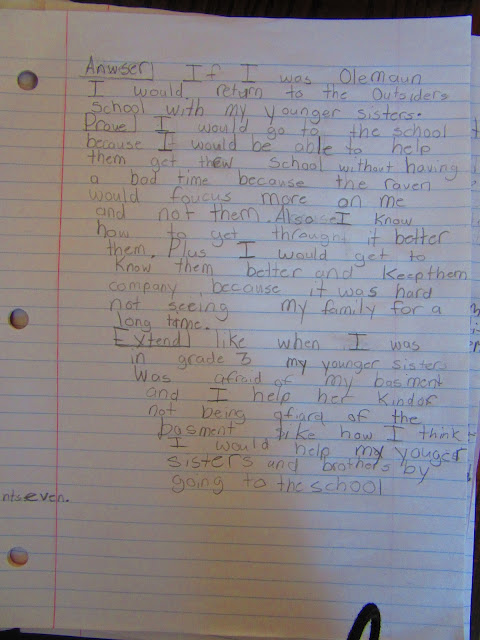 Anwser If I was Olemaun
I would return to the Outsiders
School with my younger sisters.
Prove I would go to the school
because I would be able to help
them get thew school without having
a bad time because the raven
would foucus more on me
and not them. Also I know
how to get throught it better
them. Plus I would get to
know them better and keep them
company because it was hard
not seeing my family for a
long time.
Extend like when I was
in grade 3 my younger sisters
Was afraid of my basment
and I help her kindof
not being afiard of the
basment like how I think
I would help my youger
sisters and brothers by
going to the school
nts even.